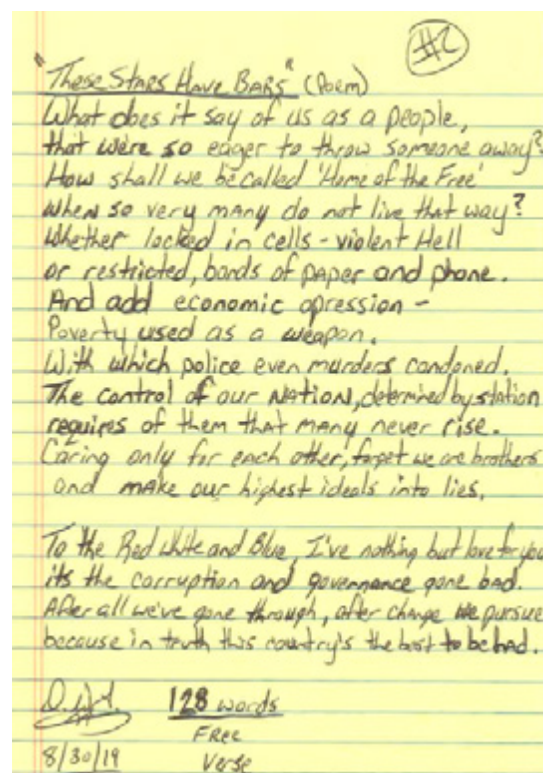 #2
"These Stars Have Bars" (Poem)
What does it say of us as a people,
that we're so eager to throw someone away?
How shall we be called 'Home of the Free'
when so very many do not live that way?
Whether locked in cells - violent Hell
or restricted, bonds of paper and phone.
And add economic opression -
Poverty used as a weapon.
With which police even murders condoned.
The control of our Nation, determined by station
requires of them that many never rise.
Caring only for each other, forget we are brothers
and make our highest ideals into lies.
To the Red White and Blue, I've nothing but love for you
its the corruption and governance gone bad.
After all we've gone through, after change we pursue
because in truth this country's the best to be had.
128 words
8/30/19
Free
Verse